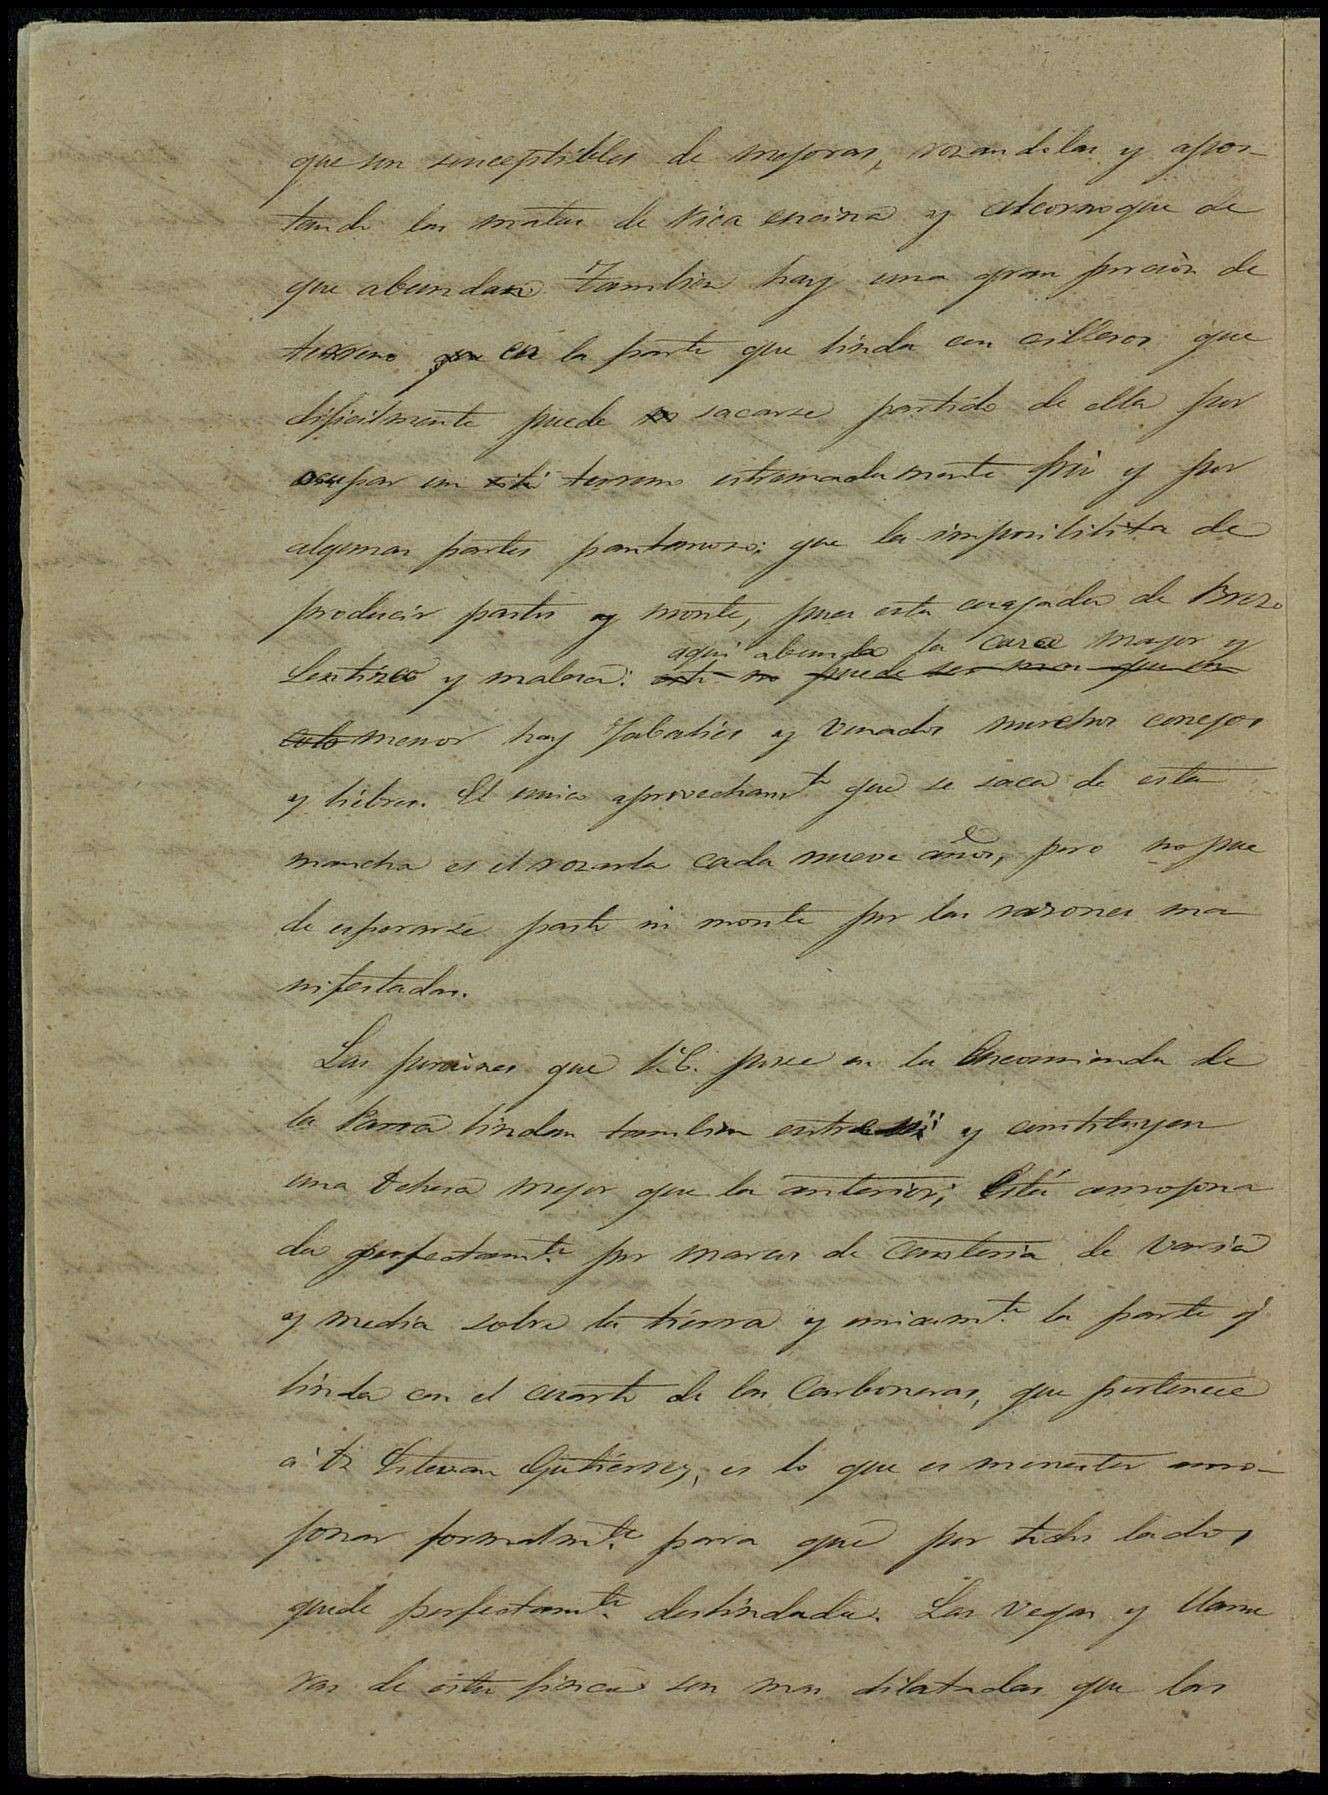 que son susceptibles de mejoras, rozandolas y apos-
tando las matas de rica encina y alcornoque de
que abundan. Tambien hay una gran porcion de
terreno en la parte que linda con cilleros que
dificilmente puede sacarse partido de ella por
ocupar un terreno estremadamente frio y por
algunas partes pantanoso; que la imposibilita de
producir pastos y monte, pues esta cuajada de Brezo
aqui abunda la caza mayor y
Lentisco y maleza: esto no puede ser mas que un
coto menor hay Jabalies y venados muchos conejos
y liebres. El unico aprovecham.to que se saca de esta
mancha es el rozarla cada nueve años, pero no pue
de esperarse pasto ni monte por las razones ma
nifestadas.
Las porciones que V.E. posee en la Encomienda de
la Parra lindan tambien entre si y constituyen
una dehesa mejor que la anterior; Está amojona
da perfectam.te por marcos de canteria de vara
y media sobre la tierra y unicam.te la parte q.
linda con el cuarto de las Carboneras, que pertenece
á D. Estevan Gutierrez, es lo que es menester amo-
jonar formalm.te para que por todos lados
quede perfectam.te deslindada. Las vegas y llanu
ras de esta finca son mas dilatadas que las